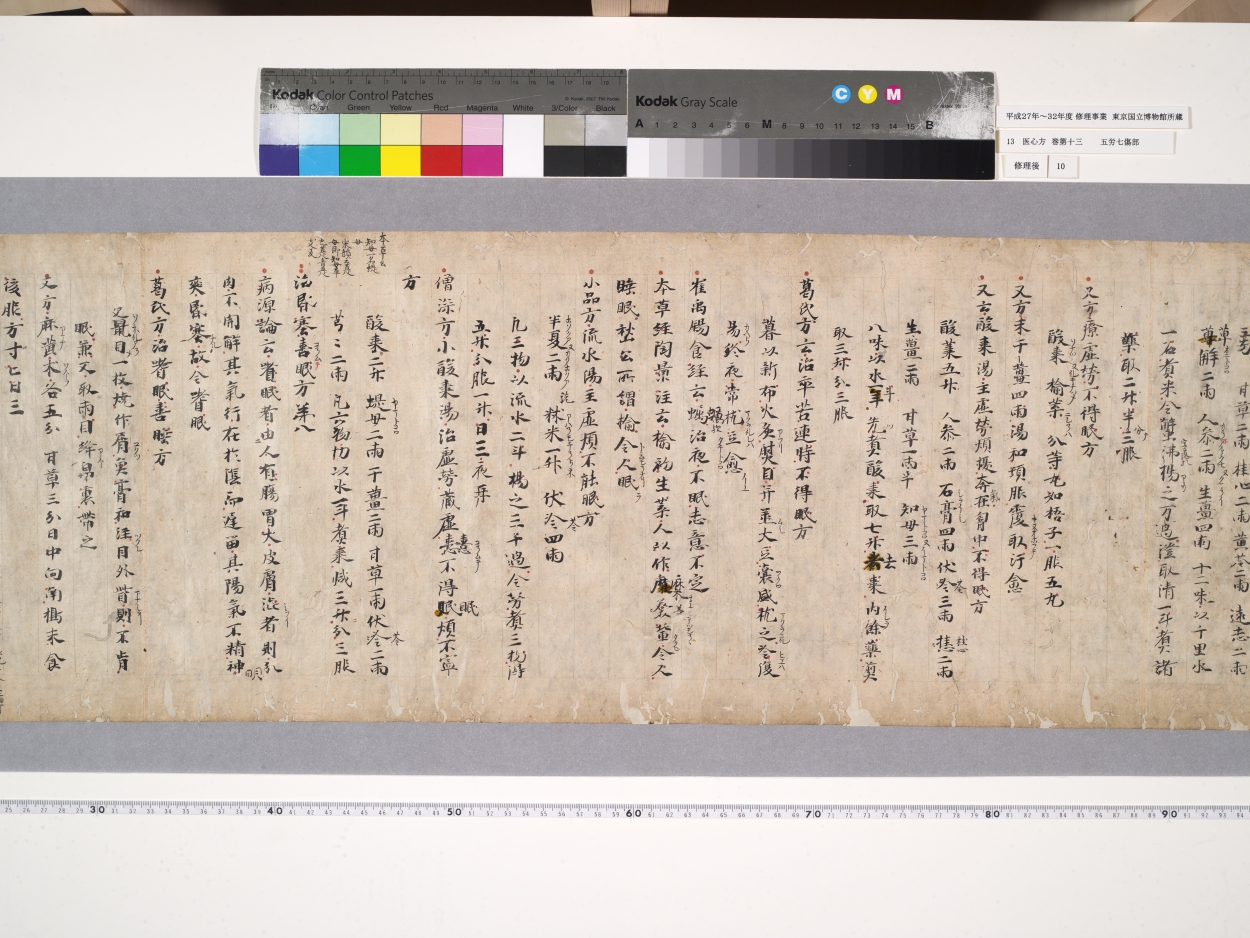 Kodak Color Control Patches
Cyan Green Yellow Red Magenta White 3/Color Black
Kodak Gray Scale
C Y M
A 1 2 3 4 5 6 M 8 9 10 11 12 13 14 15 B
平成27年〜32年度 修理事業 東京国立博物館所蔵
13 医心方 巻第十三 五労七傷部
修理後 10
甘草二兩 桂心二兩 黄芩二兩 遠志二兩
解二兩 人参二兩 生薑四兩 十二味以千里水
一石煮米令蟹沸揚之万過澄取清一斗煮諸
藥取二升半分三服
又方療虚勞不得眠方
酸棗 榆葉 分等丸如梧子服五丸
又方末干薑四兩湯和頓服覆取汗愈
又云酸棗湯主虚勞煩擾奔在胸中不得眠方
酸棗五升 人参二兩 石膏四兩 伏苓三兩 桂心二兩
生薑二兩 甘草一兩半 知母三兩
八味以水一斗先煮酸棗取七升去棗内餘藥煎
取三升分三服
葛氏方云治卒苦連時不得眠方
暮以新布火灸熨目并蒸大豆囊盛枕之冷復
易終夜常枕豆愈
崔禹錫食經云治夜不眠志意不定
本草經陶景注云榆初生莢人以作糜羹令人
睡眠嵆公所謂榆令人眠
小品方流水湯主虚煩不能眠方
半夏二兩 秫米一升 伏苓四兩
凡三物以流水二斗揚之三千過令勞煮三物得
五升分服一升日三夜再
僧深方小酸棗湯治虚勞藏虚憙不得眠煩不寧
方
酸棗二升 堤母二兩 干薑二兩 甘草一兩 伏苓二兩
芎二兩 凡六物切以水一斗煮棗減三升分三服
治昏塞善眠方第八
病源論云眠者由人有腸胃大皮膚澁者則分
肉不開解其氣行在於陰而遲留其陽氣不精神明
爽昏塞故令嗜眠
葛氏方治嗜眠善睡方
又鼠目一枚燒作屑魚膏和注目外眥則不肯
眠兼又取兩目絳囊裹帶之
又方麻黄朮各五分 甘草三分日中向南搗末食
後服方寸匕日三
30 40 50 60 70 80 90